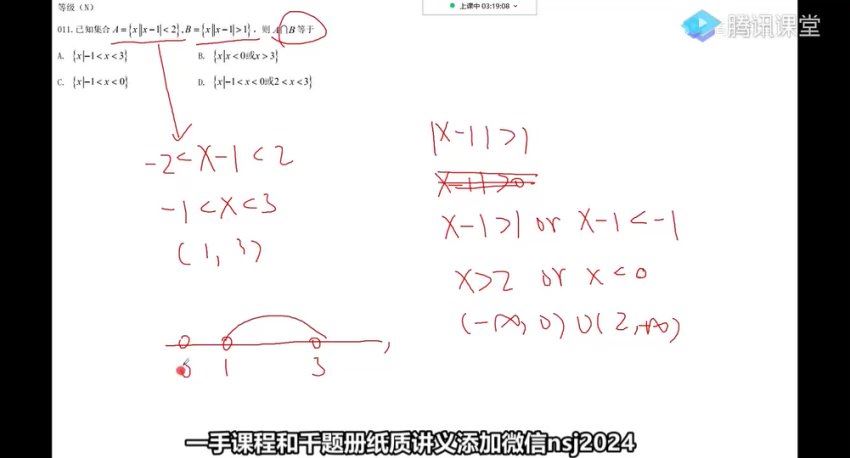 等级（N）
上课中 03:19:08
腾讯课堂
011. 已知集合 A={x||x-1|<2}, B={x||x-1|>1}, 则 A∩B 等于
A. {x|-1<x<3} B. {x|x<0或x>3}
C. {x|-1<x<0} D. {x|-1<x<0或2<x<3}
-2<x-1<2
-1<x<3
(1, 3)
|x-1|>1
x-1>1 or x-1<-1
x>2 or x<0
(-∞, 0)∪(2, +∞)
1 3
一手课程和千题册纸质讲义添加微信nsj2024